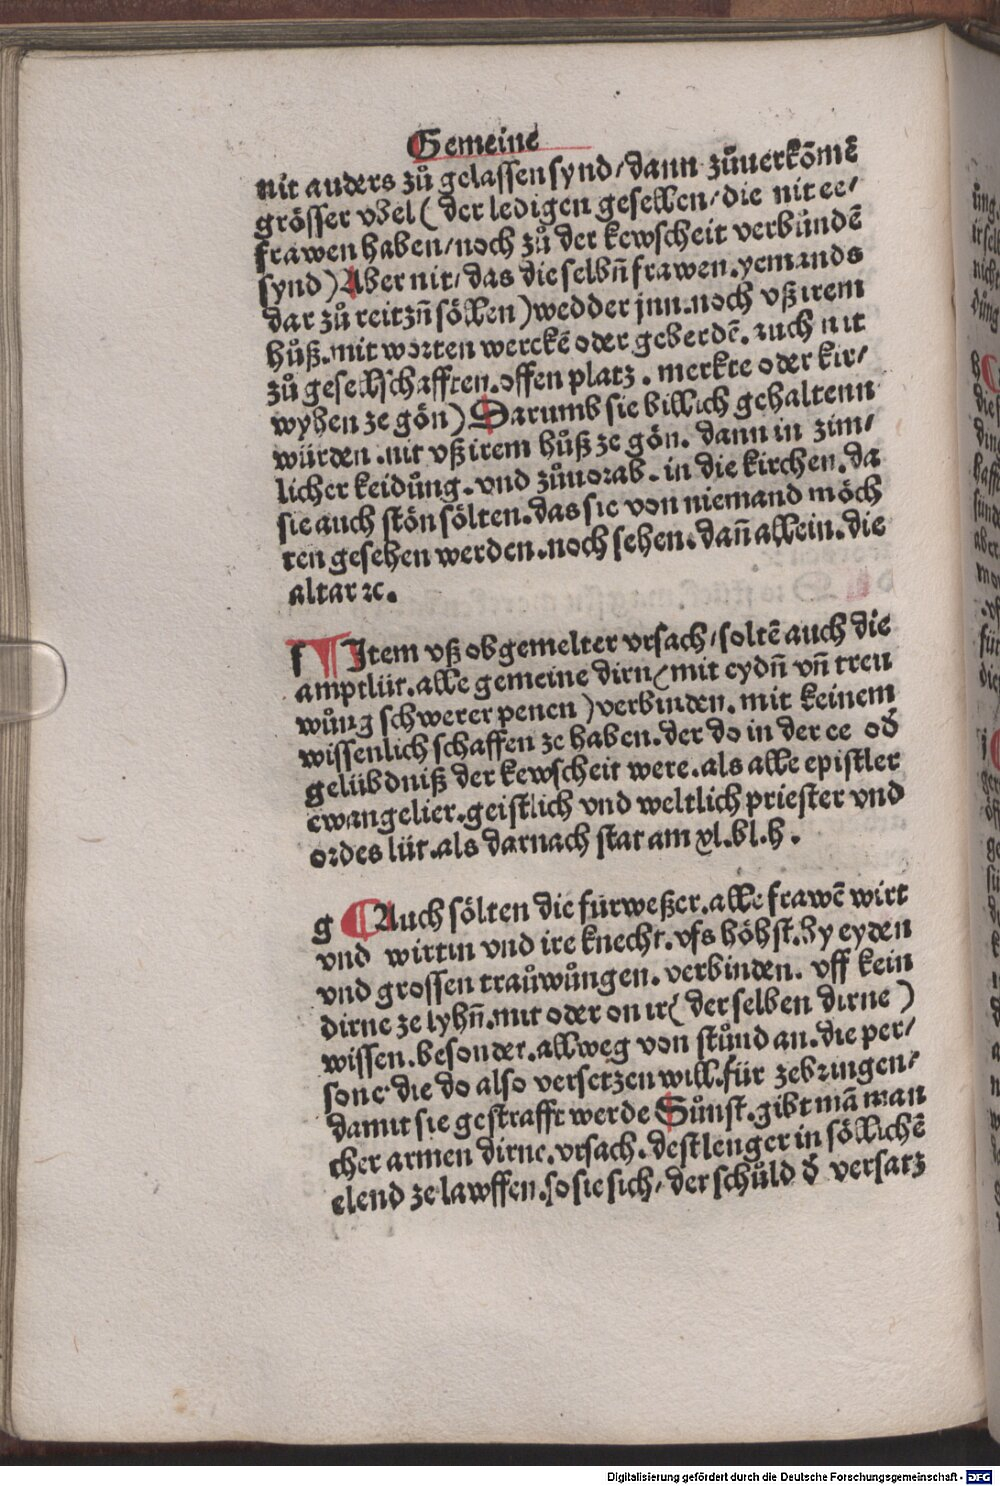 Gemeine
nit anders zů gelassen synd/dann zůuerkōmē
grösser vbel ( der ledigen gesellen/die nit ee/
frawen haben/noch zů der kewscheit verbůndē
synd) Aber nit/das die selbñ frawen.yemands
dar zů reitzñ söllen) wedder jnn.noch vß irem
hůß.mit worten werckē oder geberdē.auch nit
zů gesellschafften.offen platz.merkte oder kir/
wyhen ze gön) Darumb sie billich gehaltenn
würden.nit vß irem hůß ze gön.dann in zim/
licher kleidůng.vnd zůuorab.in die kirchen.da
sie auch stön sölten.das sie von niemand möch
ten gesehen werden.noch sehen.dañ allein.die
altar ꝛc.
f Item vß obgemelter vrsach/soltē auch die
amptlüt.alle gemeine dirn(mit eydñ vñ treu
wůng schwerer penen)verbinden.mit keinem
wissenlich schaffen ze haben.der do in der ee od̄
gelübdniß der kewscheit were.als alle epistler
ewangelier.geistlich vnd weltlich priester vnd
ordes lüt.als darnach stat am xl.bl.h.
g Auch sölten die fürweßer.alle frawē wirt
vnd wirtin vnd ire knecht.vfs höhst.by eyden
vnd grossen traůwůngen.verbinden. vff kein
dirne ze lyhñ.mit oder on ir( der selben dirne )
wissen.besonder.allweg von stůnd an.die per/
sone.die do also versetzen will.für zebringen/
damit sie gestrafft werde Sůnst.gibt mā man
cher armen dirne.vrsach.destlenger in söllichē
elend ze lawffen.so sie sich/der schůld d̄ versatz
Digitalisierung gefördert durch die Deutsche Forschungsgemeinschaft - DFG